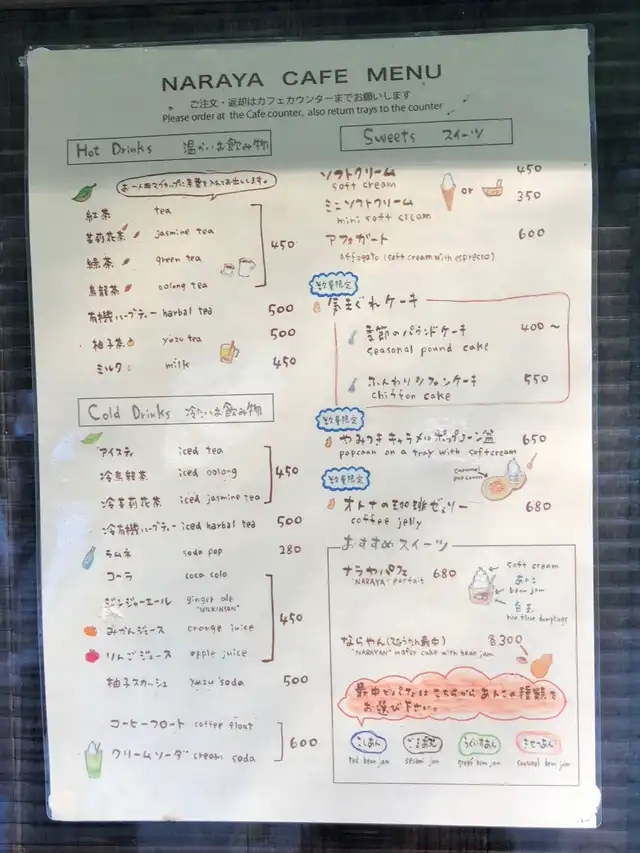 NARAYA CAFE MENU
ご注文・返却はカフェカウンターまでお願いします
Please order at the Cafe counter, also return trays to the counter
Hot Drinks 温かいお飲み物
お一人用マグカップに茶葉を入れてお出しします。
紅茶 tea
茉莉花茶 jasmine tea
緑茶 green tea
烏龍茶 oolong tea
450
有機ハーブティー harbal tea 500
柚子茶 yuzu tea 500
ミルク milk 450
Cold Drinks 冷たいお飲み物
アイスティ iced tea
冷烏龍茶 iced oolong
冷茉莉花茶 iced jasmine tea
450
冷有機ハーブティ iced harbal tea 500
ラムネ soda pop 280
コーラ coca cola
ジンジャーエール ginger ale
"WILKINSON"
みかんジュース orange juice
りんごジュース apple juice
450
柚子スカッシュ yuzu soda 500
コーヒーフロート coffee float
クリームソーダ cream soda
600
Sweets スイーツ
ソフトクリーム 450
soft cream
or
ミニソフトクリーム 350
mini soft cream
アフォガート 600
affogato (soft cream with espresso)
数量限定
気まぐれケーキ
季節のパウンドケーキ 400〜
seasonal pound cake
ふんわりシフォンケーキ 550
chiffon cake
数量限定
やみつきキャラメルポップコーン盆 650
popcorn on a tray with softcream
caramel popcorn
数量限定
オトナの珈琲ゼリー 680
coffee jelly
おすすめスイーツ
ナラヤパフェ 680
"NARAYA" parfait
soft cream
あんこ
bean jam
白玉
rice flour dumplings
ならやん(ひょうたん最中) 各300
"NARAYAN" wafer cake with bean jam
最中とパフェはこちらからあんこの種類を
お選び下さい。
こしあん
red bean jam
ごまあん
sesami jam
うぐいすあん
green bean jam
きせつあん
seasonal bean jam